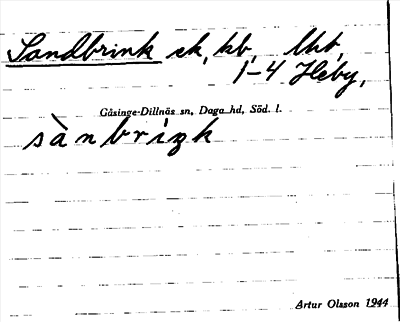 Sandbrink sk, kb, lht,
1–4 Heby,
Gåsinge-Dillnäs sn, Daga hd, Söd. l.
sànbriŋk
Artur Olsson 1944